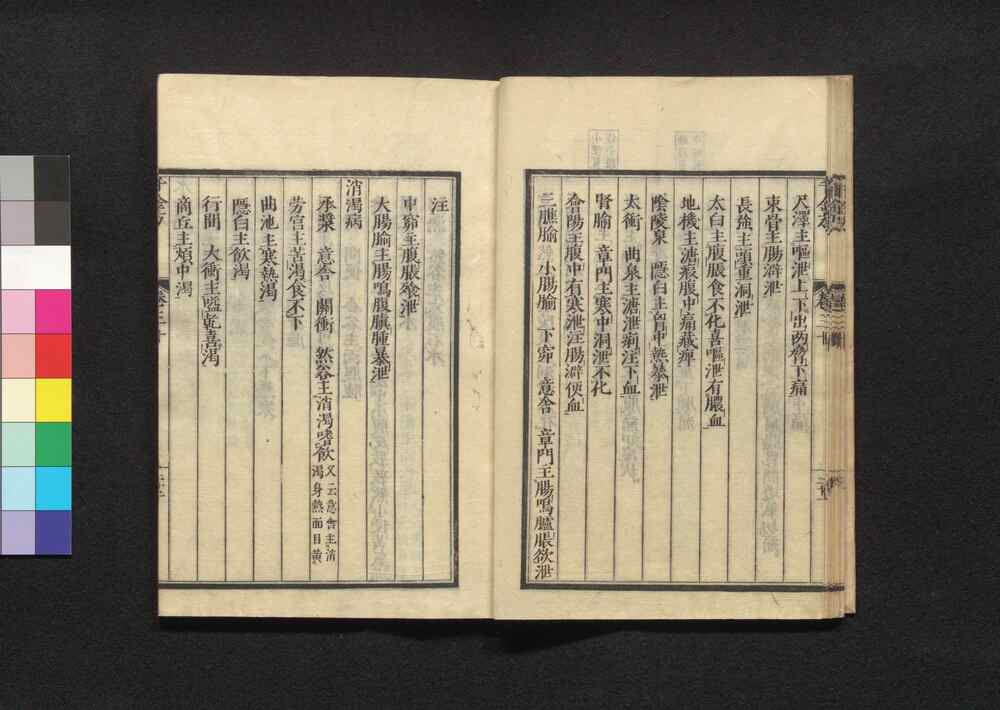 尺澤主嘔泄上下出兩脅下痛
束骨主腸澼泄
長強主頭重洞泄
太白主腹脹食不化喜嘔泄有膿血
地機主溏瘕腹中痛藏痺
陰陵泉　隱白主胸中熱暴泄
太衝　曲泉主溏泄痢注下血
腎腧　章門主寒中洞泄不化
會陽主腹中有寒泄注腸澼便血
三膲腧　小腸腧　下窌　意舍　章門主腸鳴臚脹欲泄
注
中窌主腹脹飧泄
大腸腧主腸鳴腹䐜腫暴泄
消渴病
承漿　意舍　關衝　然谷主消渴嗜飲
又云意舍主消
渴身熱面目黃
勞宮主苦渴食不下
曲池主寒熱渴
隱白主飲渴
行間　大衝主嗌乾喜渴
商丘主煩中渴